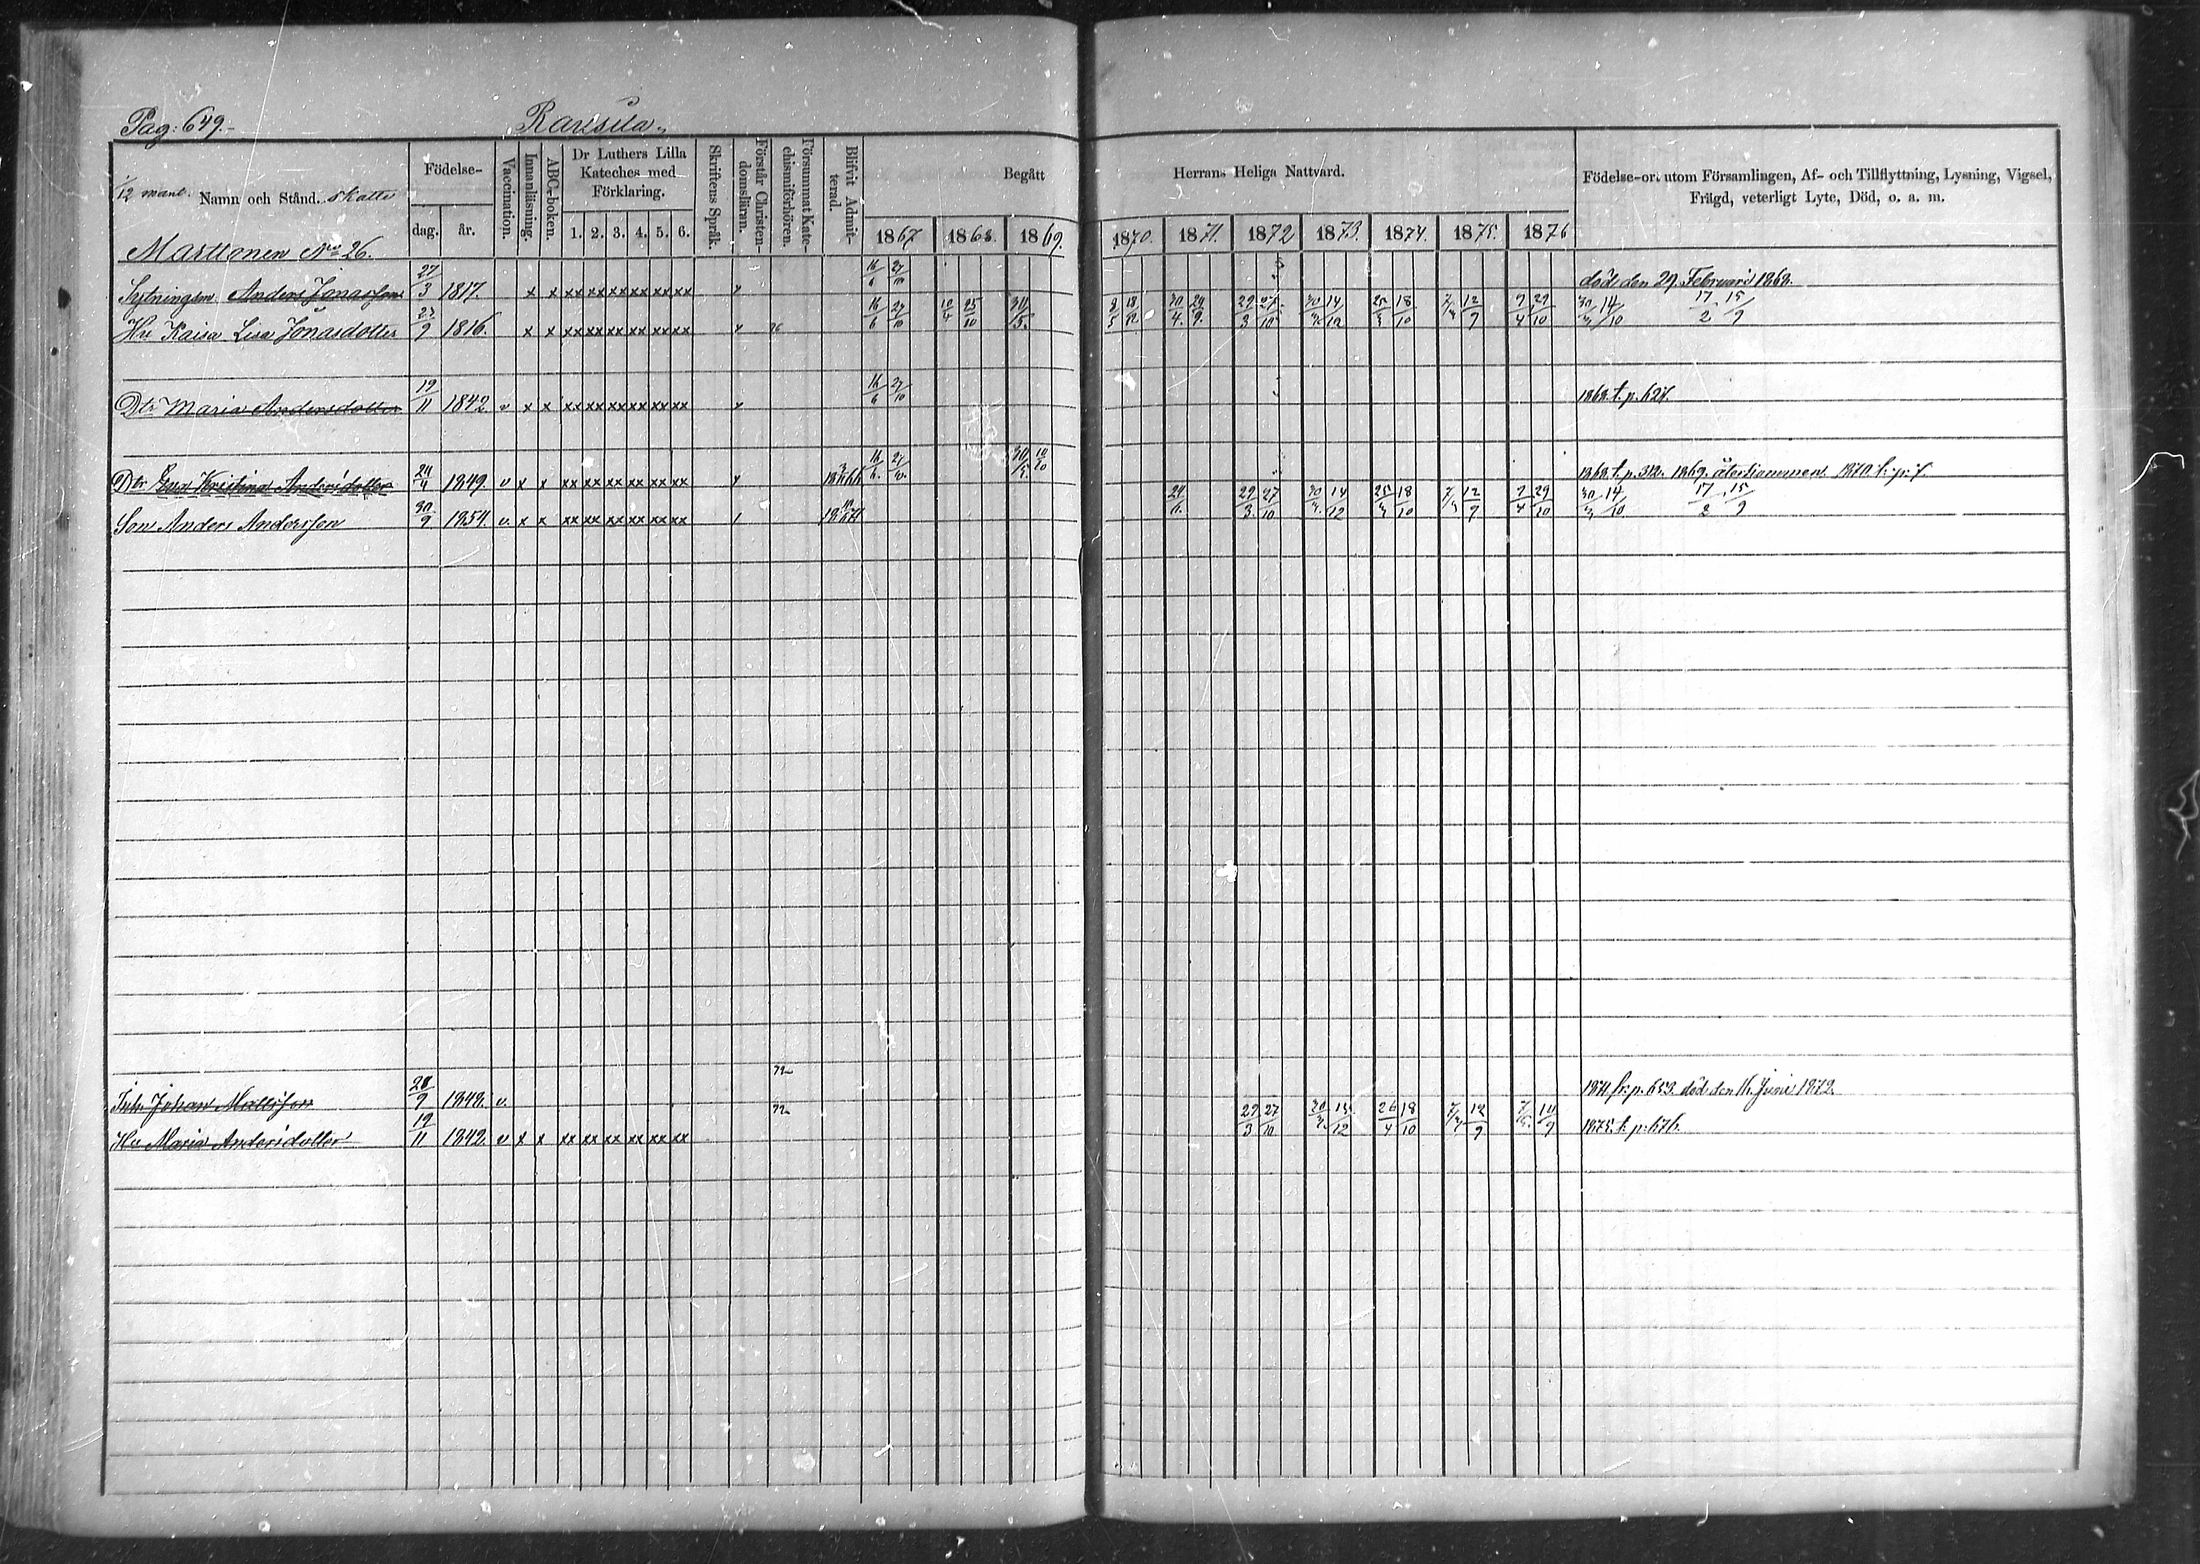 Pag: 649.
1/12 mantl. Namn och Stånd. Skatte
Födelse-
dag. år.
Vaccination.
Innanläsning.
ABC-boken.
Dr Luthers Lilla
Kateches med
Förklaring.
1. 2. 3. 4. 5. 6.
Skriftens Språk.
Förstår Christen-
domsläran.
Försummat Kate-
chismiförhören.
Blifvit Admit-
terad.
Begått Herrans Heliga Nattvard.
1867 1868. 1869. 1870. 1871. 1872 1873. 1874. 1875. 1876
Födelse-ort utom Församlingen, Af- och Tillflyttning, Lysning, Vigsel,
Frägd, veterligt Lyte, Död, o. a. m.
Marttonen No 26.
Sytningsm Anders Jönasson 27/3 1817. x x xx xx xx xx xx xx x 16/6 27/10 död den 29 Februari 1868.
Hu Kaisa Lisa Jönasdotter 23/9 1816. x x xx xx xx xx xx xx x 76 16/6 27/10 25/10 29/3 27/10 30/3 14/12 25/3 18/10 12/9 9/4 29/10 14/10 17/2 15/9
Dtr Maria Andersdotter 19/11 1842 v x x xx xx xx xx xx xx x 16/6 27/10 1868 t. p. 627.
Dtr Eva Kristina Andersdotter 24/4 1849 v x x xx xx xx xx xx xx x 1866 16/6 27/10 1868 t. p. 312. 1869 återkommen 1870
Son Anders Andersson 30/9 1854 v. x x xx xx xx xx xx xx 1 29/3 27/10 14/12 25/3 18/10 12/9 9/4 29/10 14/10 17/2 15/9
Inh. Johan Mattsson 28/9 1848. v. 72 1871 fr. p. 653. död den 16 Juni 1872.
Hu Maria Andersdotter 19/11 1842 v x x xx xx xx xx xx xx 72 29/3 27/10 26/4 18/10 12/9 t. p. 676.